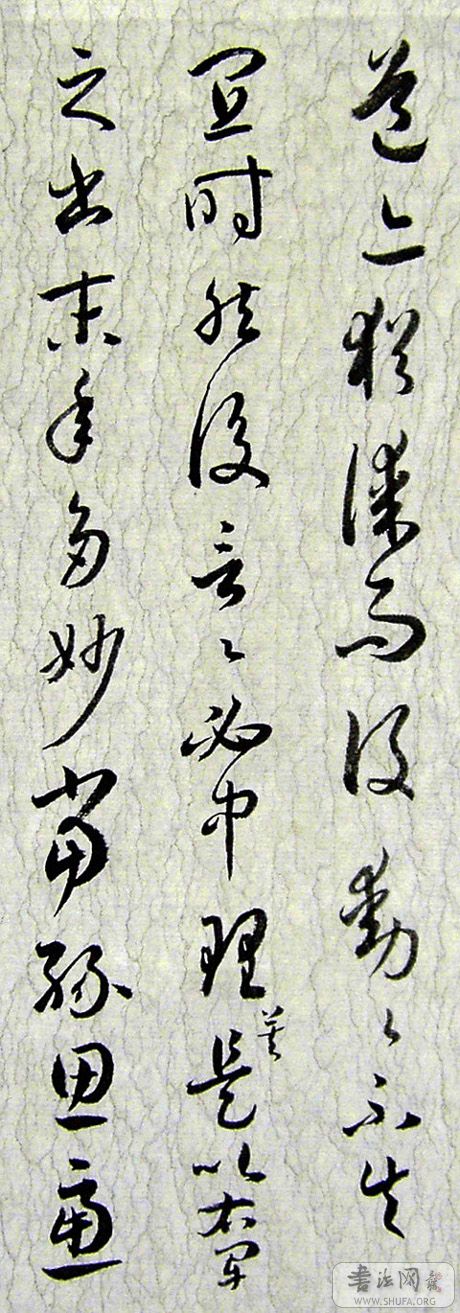 道亦猶謀而後動々不失
宜時然後言々必中理矣是以右軍
之書末年多妙當緣思慮
書法网
WWW.SHUFA.ORG